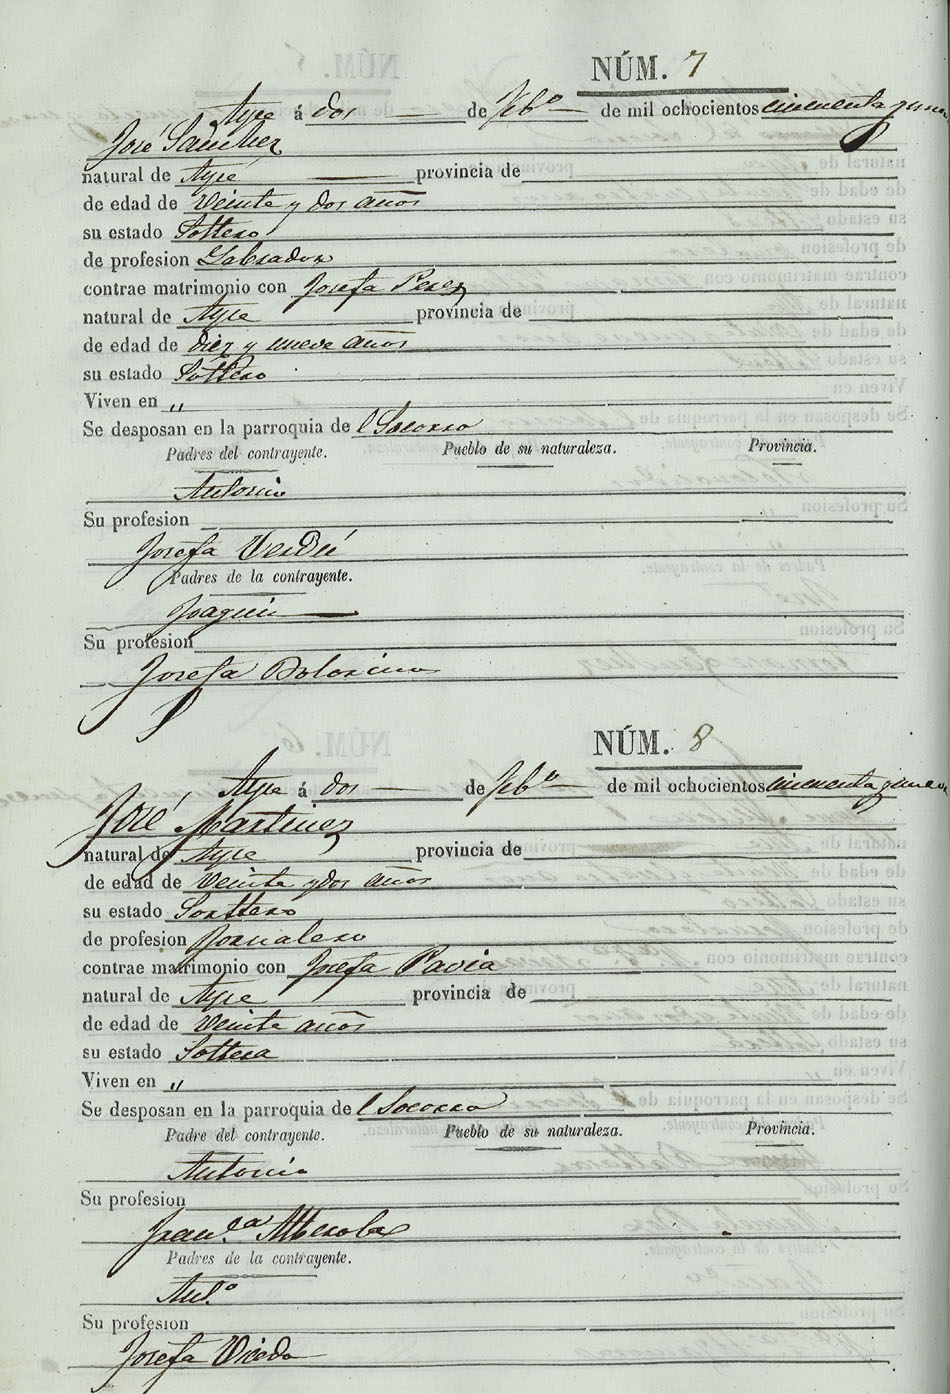 NÚM. 7
Aspe á dos de Feb.º de mil ochocientos cincuenta y nueve
José Sanchez
natural de Aspe provincia de
de edad de Veinte y dos años
su estado Soltero
de profesion Labrador
contrae matrimonio con Josefa Perez
natural de Aspe provincia de
de edad de diez y nueve años
su estado Soltera
Viven en "
Se desposan en la parroquia de l Socorro
Padres del contrayente. Pueblo de su naturaleza. Provincia.
Antonio
Su profesion
Josefa Verdú
Padres de la contrayente.
Joaquin
Su profesion
Josefa
NÚM. 8
Aspe á dos de Feb.º de mil ochocientos cincuenta y nueve
José Martinez
natural de Aspe provincia de
de edad de Veinte y dos años
su estado Sorttero
de profesion Jornalero
contrae matrimonio con Josefa Pavia
natural de Aspe provincia de
de edad de Veinte años
su estado Soltera
Viven en "
Se desposan en la parroquia de l Socorro
Padre del contrayente. Pueblo de su naturaleza. Provincia.
Antonio
Su profesion
Fran.ca Alberola
Padres de la contrayente.
Ant.º
Su profesion
Josefa